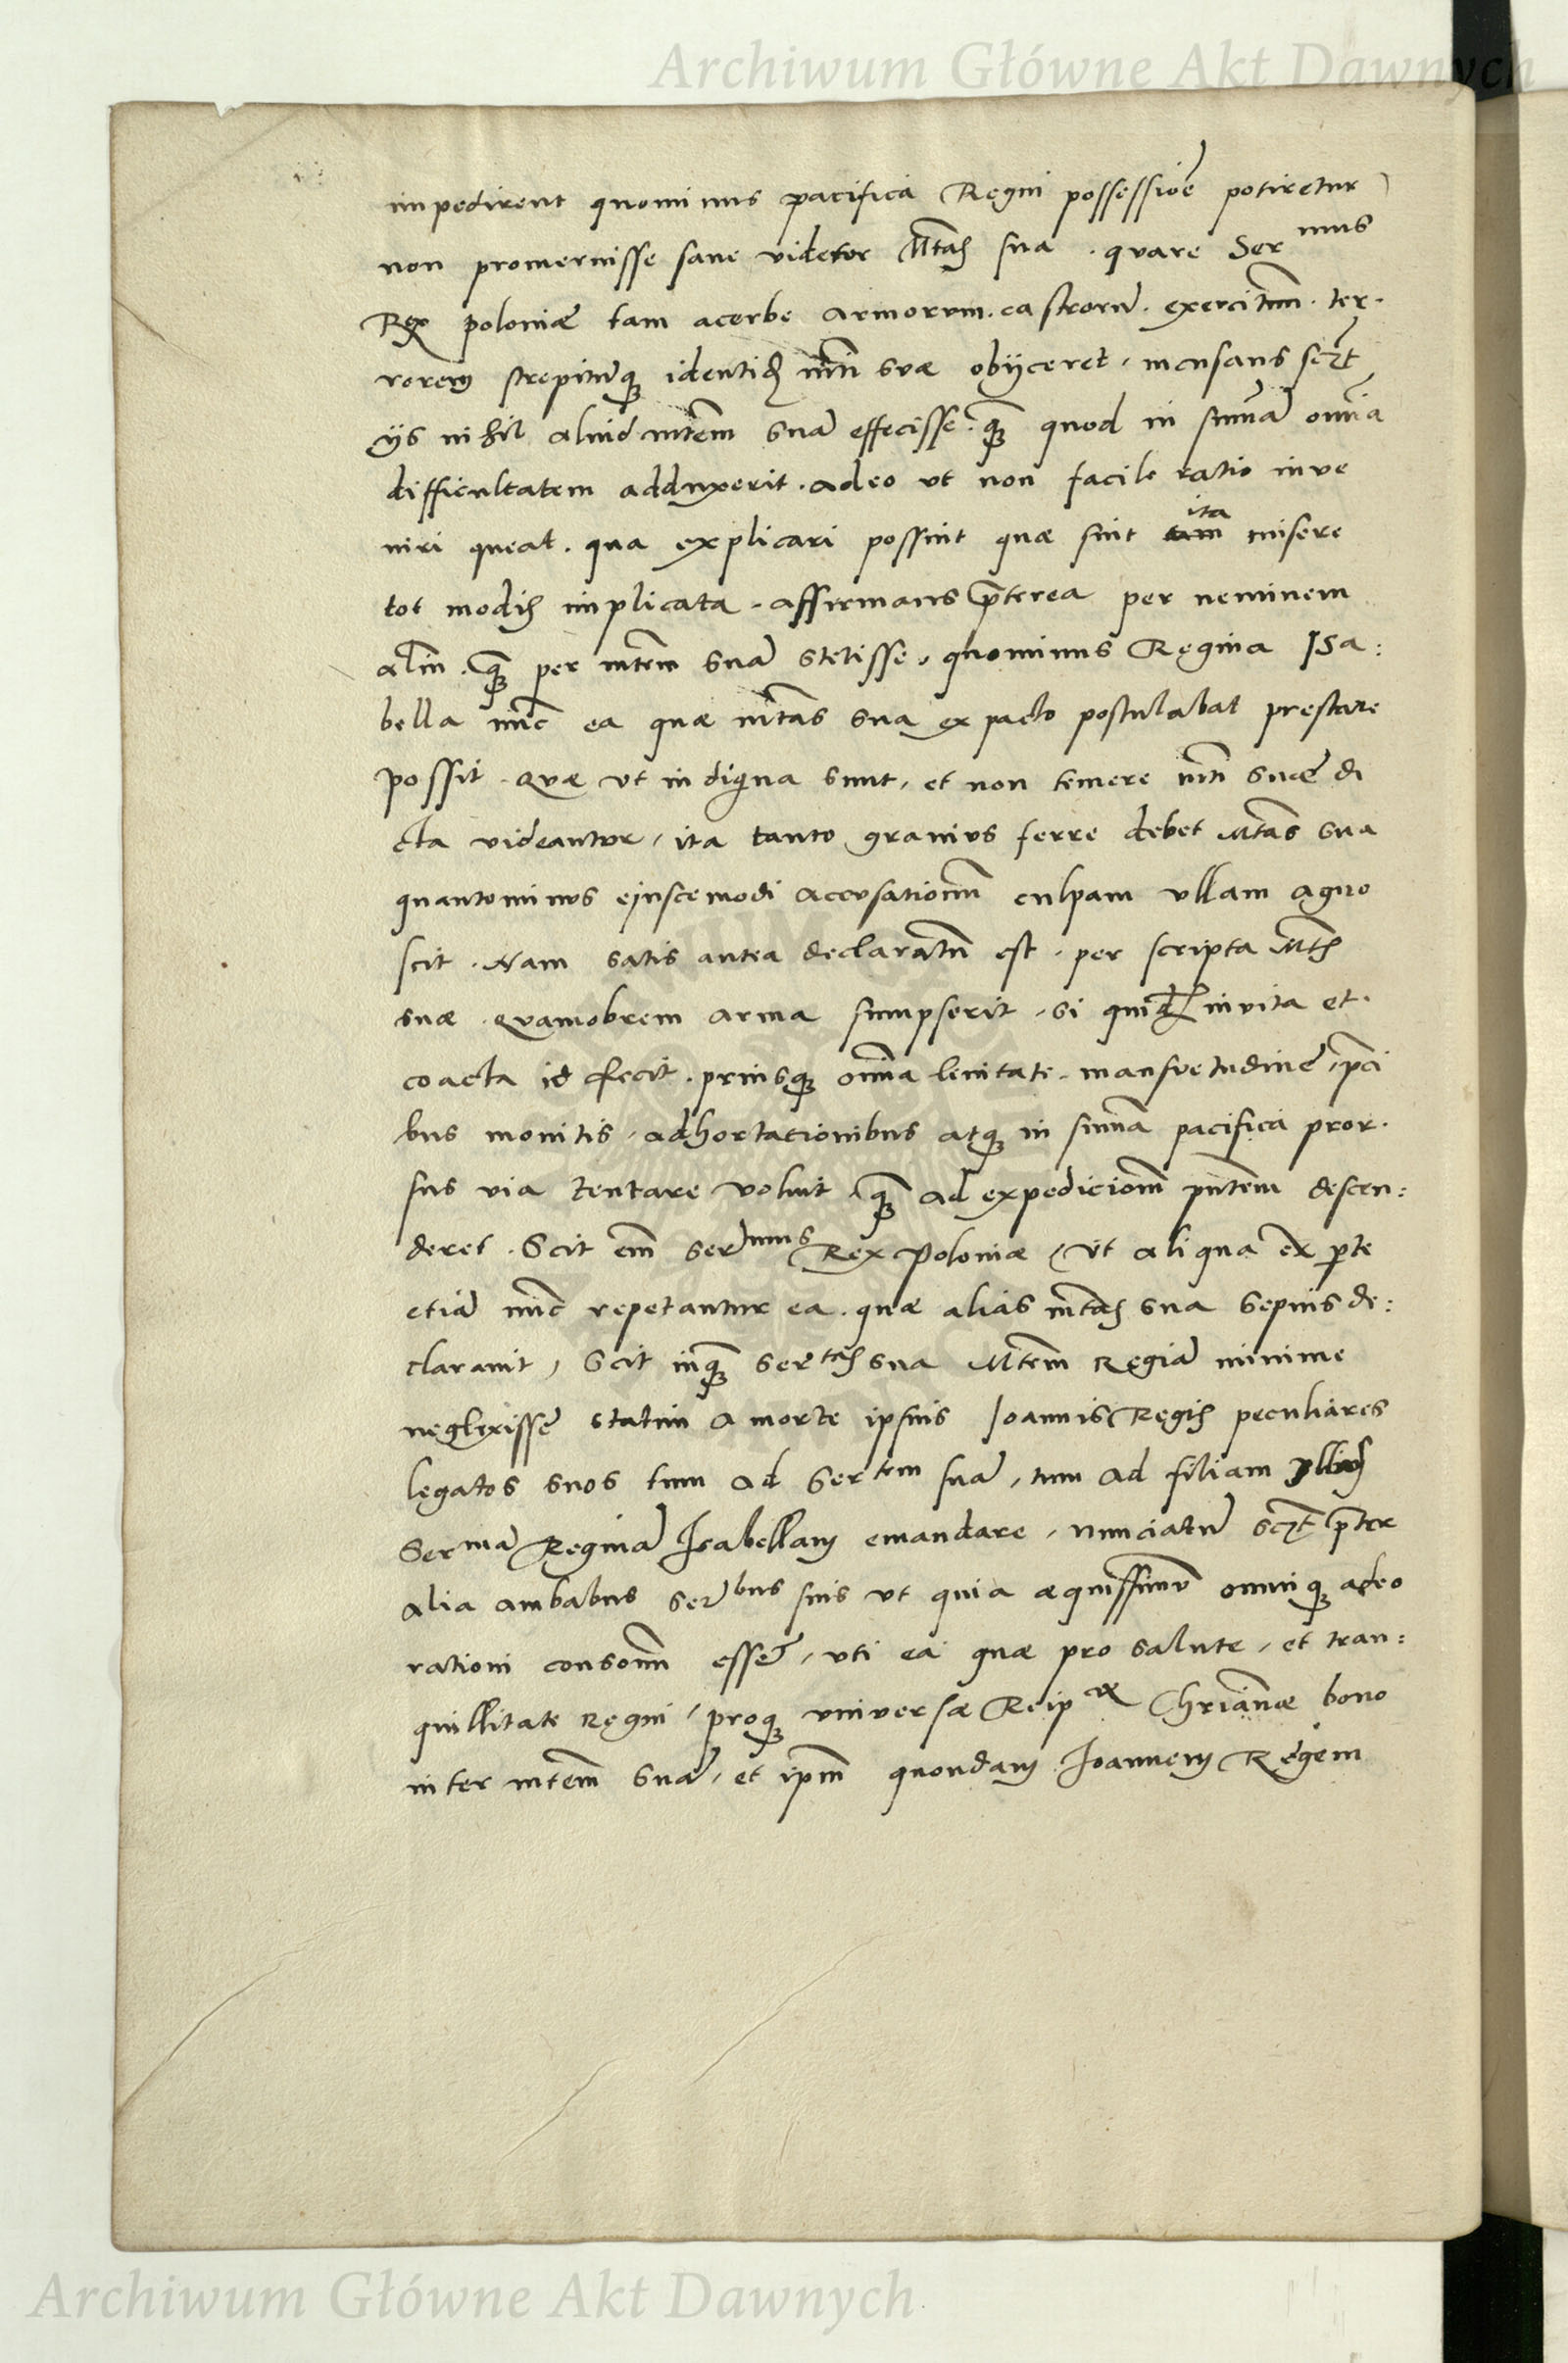 Archiwum Główne Akt Dawnych
impedirent quominus pacifica Regni possessiōe potiretur
non promeruisse sane videtur Mtas sua . quare Ser mus
Rex poloniæ tam acerbe armorum . castrorū . exercituum . ter.
rorem strepitūq; identidē mti suæ obijceret , incusans scȝt
ijs nihil aliud mtem suā effecisse . quā quod in summā omnia
difficultatem adduxerit . adeo vt non facile ratio inve
niri queat . qua explicari possint quæ sint tam ita misere
tot modis implicata . affirmans p̄terea per neminem
aliū . quā per mtem suā stetisse , quominus Regina Isa:
bella nūc ea quæ mtas sua ex pacto postulabat prestare
possit . Quæ vt indigna sunt , et non temere mti suæ di
cta videantur , ita tanto gravius ferre debet Mtas sua
quantominus eiuscemodi accusationum culpam vllam agno
scit . Nam satis antea declaratū est . per scripta Mtis
suæ . Quamobrem arma sumpserit . si quidē invita et .
coacta id fecit . priusq; omnia lenitate . mansvetudine , p̄ci
bus monitis , adhortationibus atq; in summa pacifica pror.
sus via tentare voluit . quā ad expedicionem pñtem descen:
deret . Scit em̄ ser mus Rex Poloniæ , (vt aliqua ex pte
etiā nūc repetantur ea . quæ alias mtas sua sepius de:
claravit , Scit inquā ser tas sua Mtem Regiā minime
neglexisse statim a morte ipsius Joannis Regis peculiares
legatos suos tum ad ser tem suā , tum ad filiam illius
Ser mā Reginā Isabellam emandare , nunciatū scȝt p̄ter
alia ambabus ser bus suis vt quia æquissimū omniq; adeo
rationi consonū esset , vti ea quæ pro salute , et tran:
quillitate regni , proq; universæ Reip cæ Chriānæ bono
inter mtem suā , et ipm̄ quondam Joannem Regem
Archiwum Główne Akt Dawnych